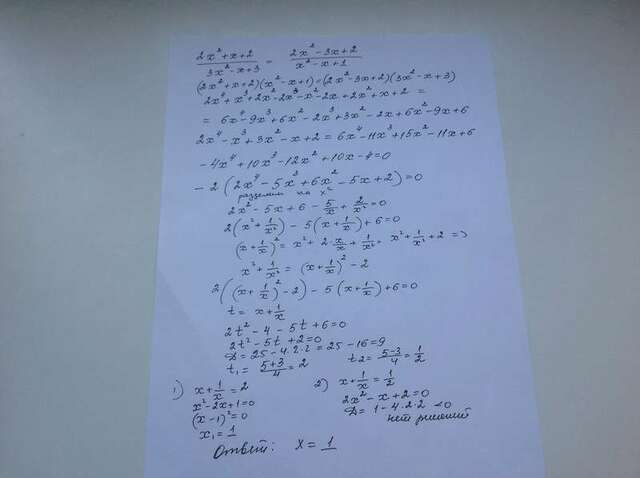 (2x²+x+2)/(3x²-x+3) = (2x²-3x+2)/(x²-x+1)
(2x²+x+2)(x²-x+1)=(2x²-3x+2)(3x²-x+3)
2x⁴+x³+2x²-2x³-x²-2x+2x²+x+2 =
= 6x⁴-9x³+6x²-2x³+3x²-2x+6x²-9x+6
2x⁴-x³+3x²-x+2=6x⁴-11x³+15x²-11x+6
-4x⁴+10x³-12x²+10x-4=0
-2(2x⁴-5x³+6x²-5x+2)=0
разделим на x²
2x²-5x+6-5/x+2/x²=0
2(x²+1/x²)-5(x+1/x)+6=0
(x+1/x)²=x²+2·x/x+1/x²= x²+1/x²+2 =>
x²+1/x²=(x+1/x)²-2
2((x+1/x)²-2)-5(x+1/x)+6=0
t= x+1/x
2t²-4-5t+6=0
2t²-5t+2=0
D=25-4·2·2=25-16=9
t₁=(5+3)/4=2 t₂=(5-3)/4=1/2
1) x+1/x=2
x²-2x+1=0
(x-1)²=0
x₁=1
2) x+1/x=1/2
2x²-x+2=0
D=1-4·2·2<0
нет решений
Ответ: x=1